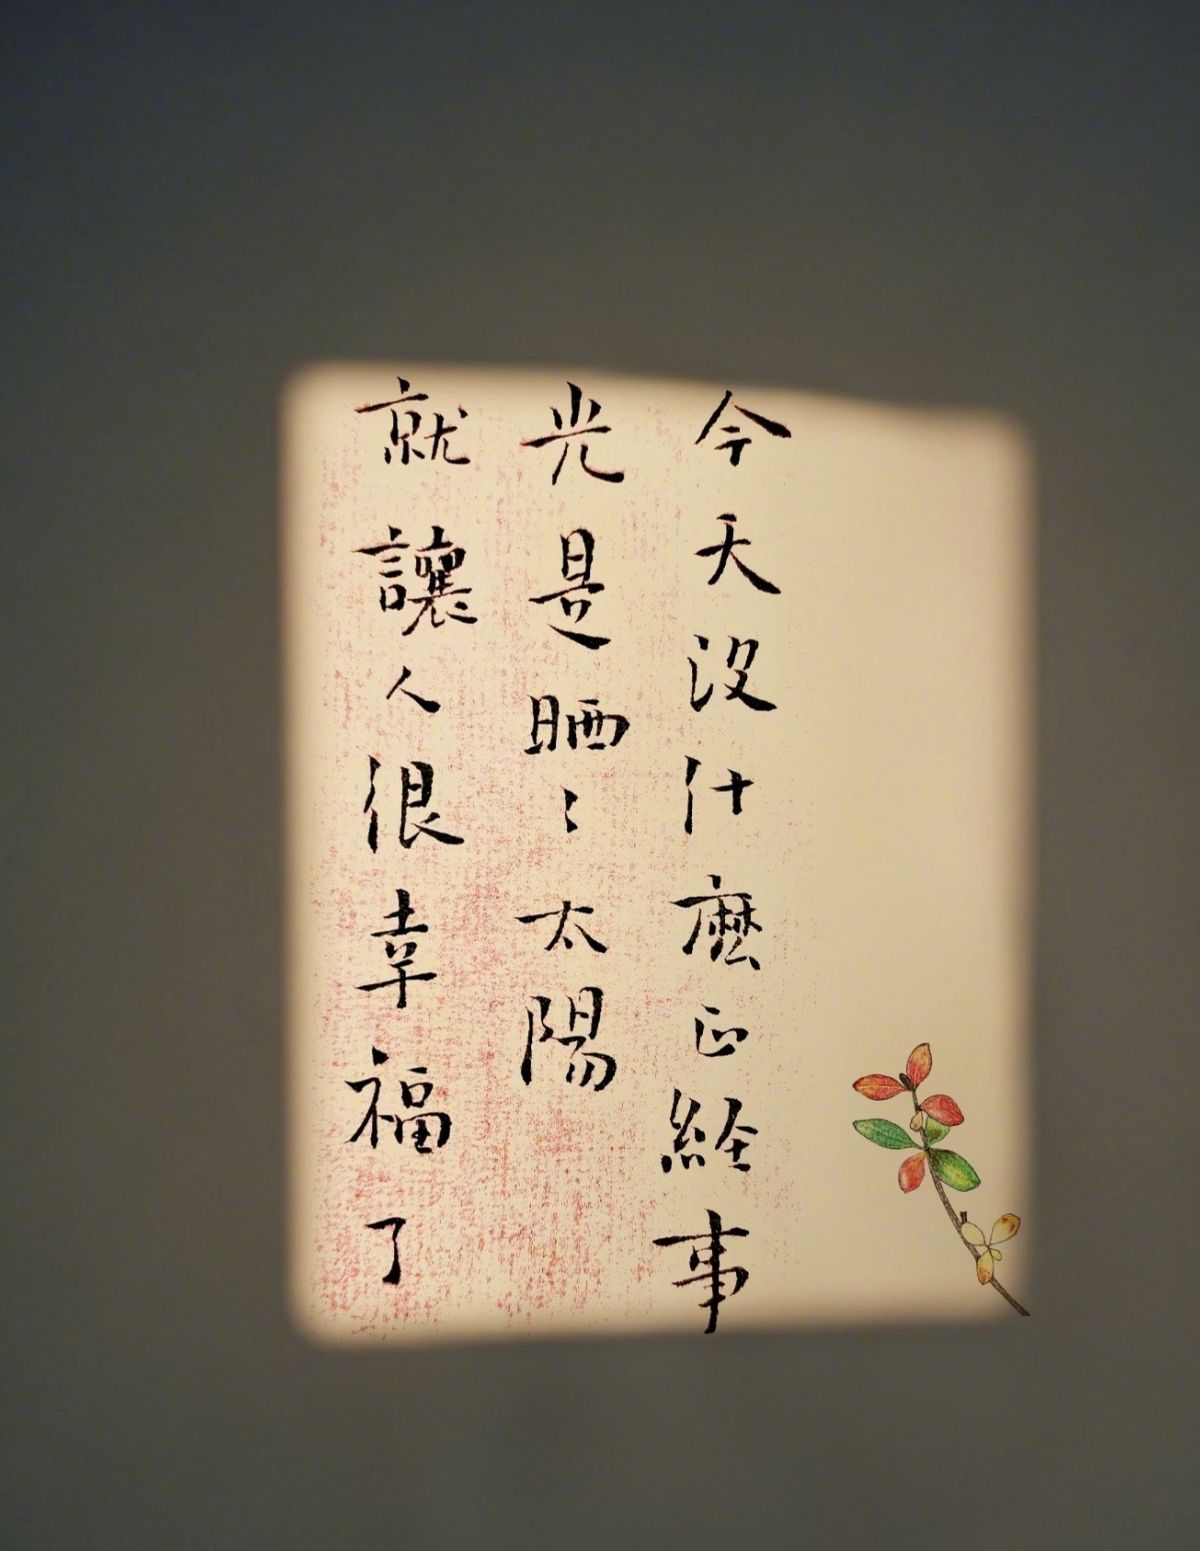 今天没什麽正経事
光是晒〻太陽
就讓人很幸福了